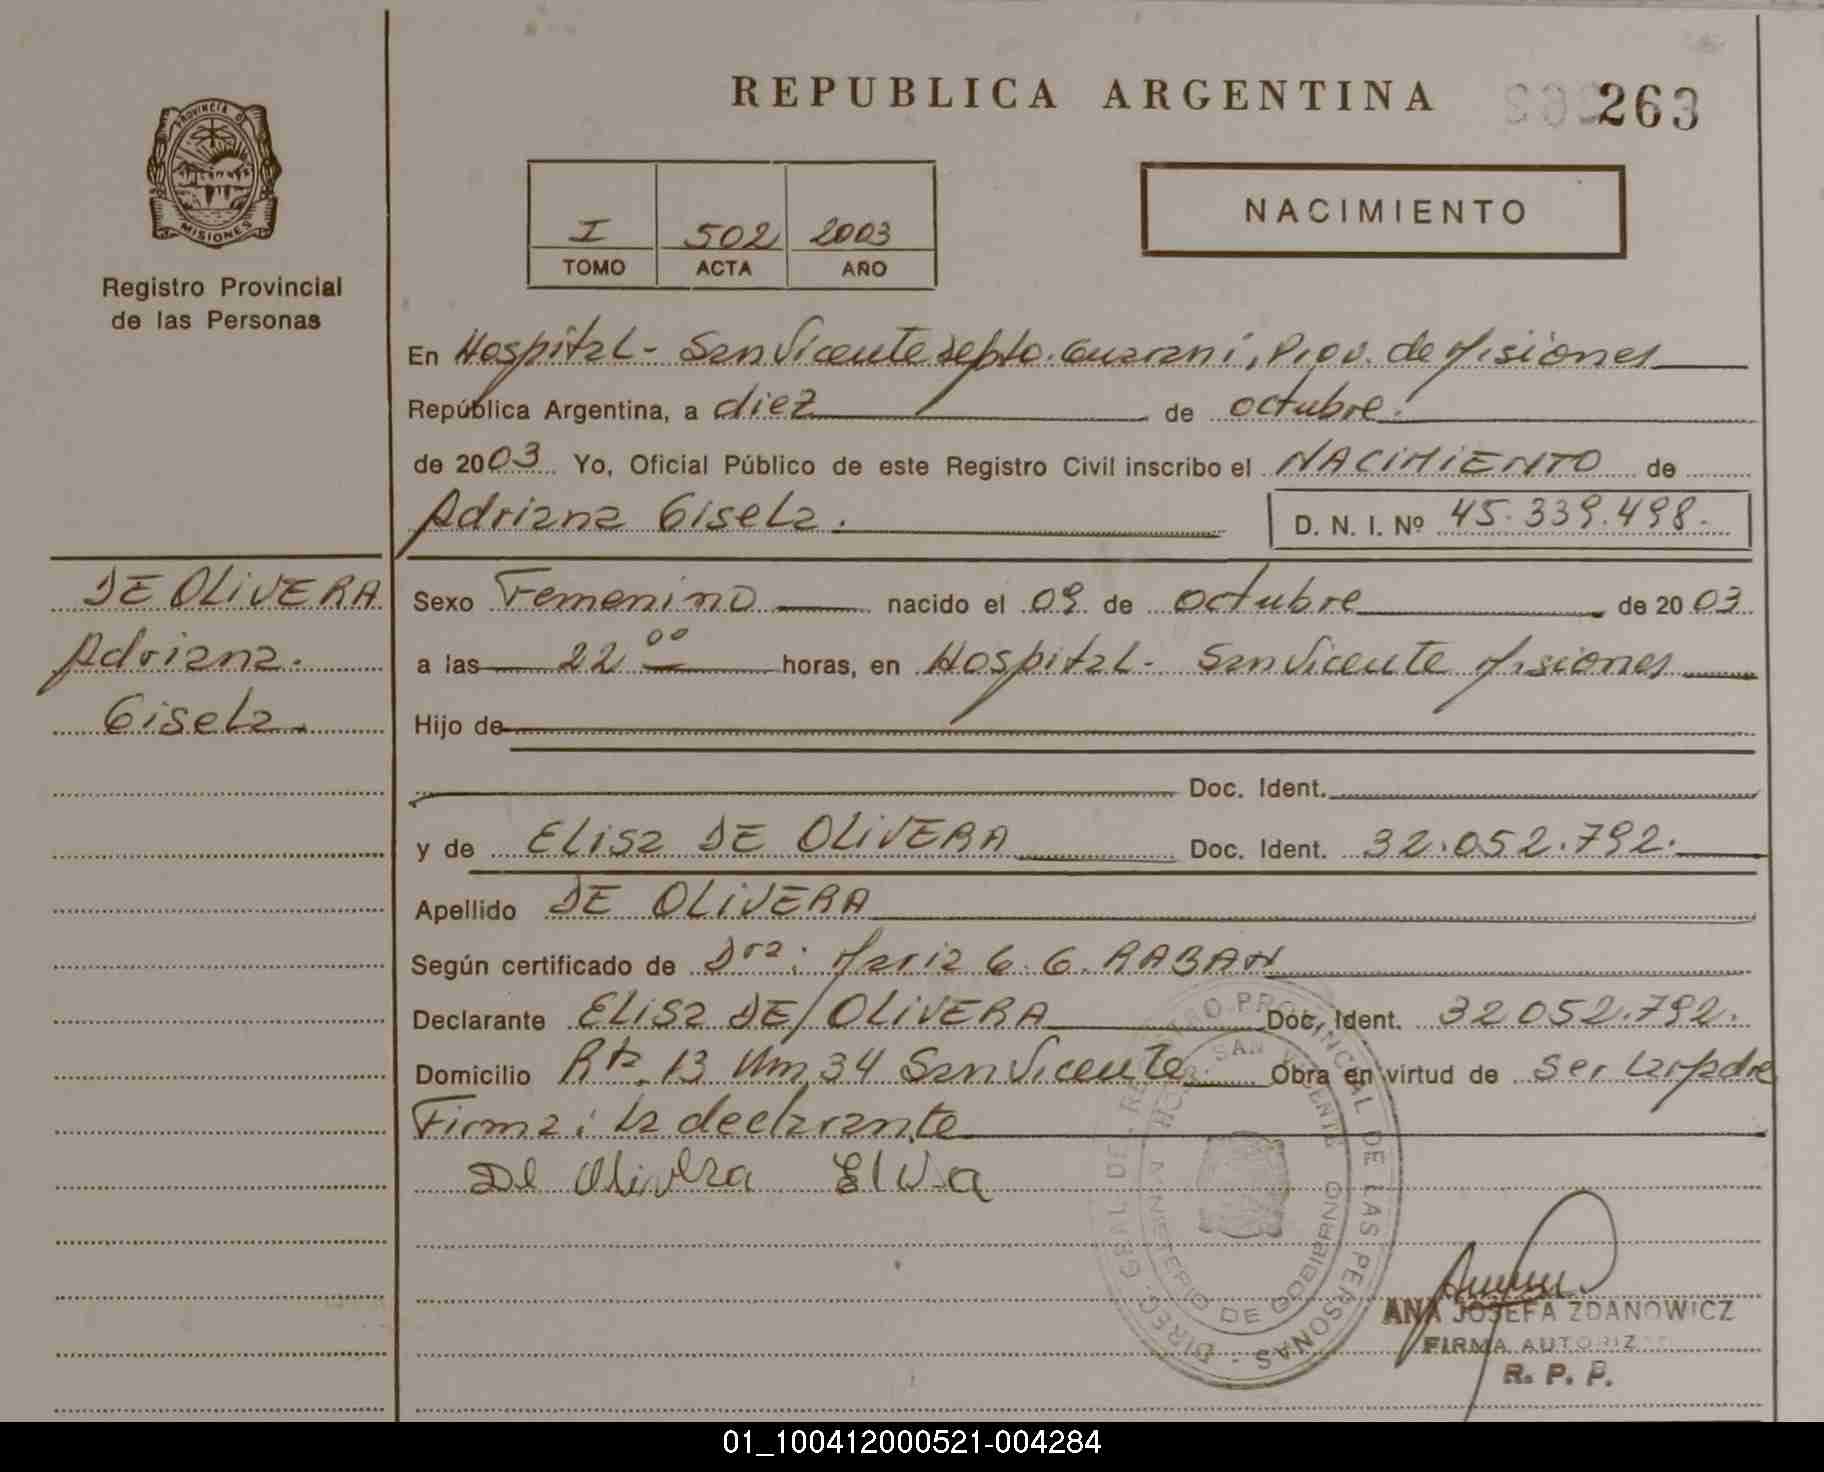 REPUBLICA ARGENTINA
263
PROVINCIA DE
MISIONES
Registro Provincial
de las Personas
I 502 2003
TOMO ACTA AÑO
NACIMIENTO
En Hospital - San Vicente depto. Guarani, Prov. de Misiones
República Argentina, a diez de octubre.
de 2003 Yo, Oficial Público de este Registro Civil inscribo el NACIMIENTO de
Adriana Gisela.
D. N. I. Nº 45.339.498.
DE OLIVERA
Adriana.
Gisela.
Sexo Femenino nacido el 09 de octubre de 2003
a las 22 00 horas, en Hospital - San Vicente Misiones
Hijo de
Doc. Ident.
y de Elisa DE OLIVERA Doc. Ident. 32.052.792.
Apellido DE OLIVERA
Según certificado de Dra: Maria G. G. RABAN
Declarante Elisa DE OLIVERA Doc. Ident. 32052.792.
Domicilio Rta. 13 Km 34 San Vicente Obra en virtud de ser la madre
Firma: la declarante
De Olivera
DIREC. GRAL DE REGISTRO PROVINCIAL DE LAS PERSONAS
SAN VICENTE
MINISTERIO DE GOBIERNO
ANA JOSEFA ZDANOWICZ
FIRMA AUTORIZ
R. P. P.
01_100412000521-004284